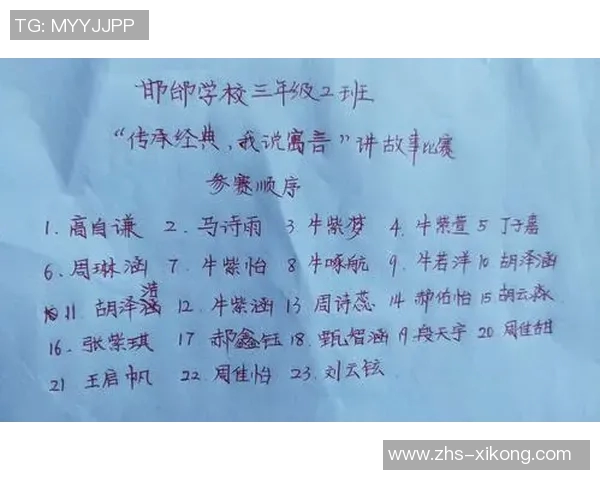 TG: MYYJJPP
邯郸学校三年级2班
“传承经典，我说寓言”讲故事比赛
参赛顺序
1. 高自谦 2. 马诗雨 3 牛紫梦 4. 牛紫萱 5 丁子嘉
6. 周琳涵 7. 牛紫怡 8 牛啄航 9. 牛若洋 10 胡泽涵
11. 胡泽浩 12. 牛紫涵 13 周诗蕊 14 郝伯怡 15 胡云淼
16. 张紫琪 17 郝鑫钰 18. 甄智涵 19. 段天宇 20. 周佳甜
21 王启帆 22. 周佳怡 23. 刘云铉
www.zhs-xikong.com